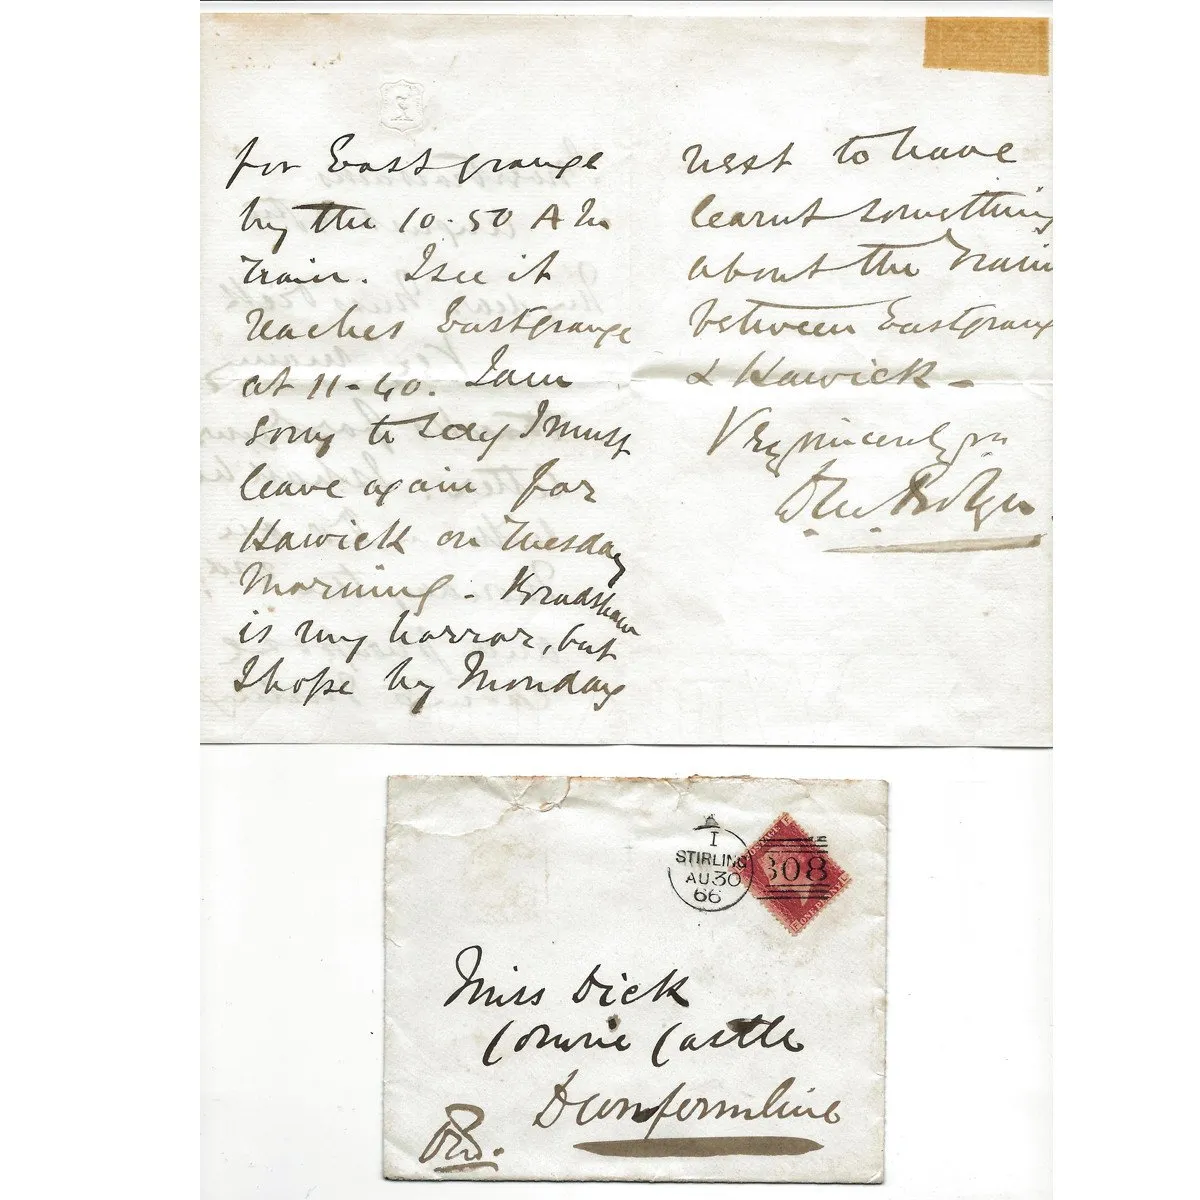 for Eastgrange
by the 10.50 A M
Train. I see it
reaches Eastgrange
at 11-40. I am
sorry to say I must
leave again for
Hawick on Tuesday
Morning - Bradshaw
is my horror, but
I hope by Monday
next to have
learnt something
about the Train
between Eastgrange
& Hawick -
Very sincerely yrs
I
STIRLING
AU 30
66
308
POSTAGE
ONE PENNY
Miss Dick
Comrie Castle
Dunfermline